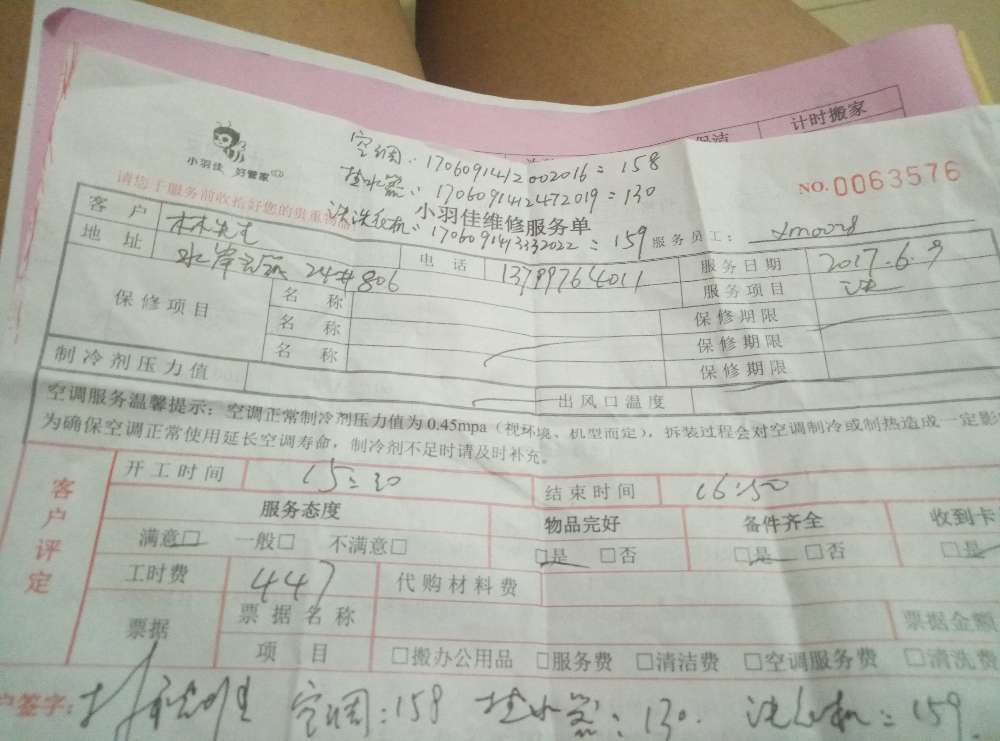 计时搬家
小羽佳 好管家
空调：1706091412002016=158
1706091412472019=130
NO.0063576
请您于服务前收拾好您的贵重物品
小羽佳维修服务单
1706091413332022=159
服务员工：
客户 林先生 电话 13799764011 服务日期 2017.6.9
地址 24# 806 服务项目 洗
保修项目 名称 保修期限
名称 保修期限
名称 保修期限
制冷剂压力值 出风口温度
空调服务温馨提示：空调正常制冷剂压力值为0.45mpa（视环境、机型而定），拆装过程会对空调制冷或制热造成一定影
为确保空调正常使用延长空调寿命，制冷剂不足时请及时补充。
客户评定
开工时间 15:30 结束时间 16:50
服务态度 物品完好 备件齐全 收到卡
满意□ 一般□ 不满意□ □是 □否 □是 □否 □是
工时费 447 代购材料费
票据 票据名称 票据金额
项目 □搬办公用品 □服务费 □清洁费 □空调服务费 □清洗费
户签字： 林先生 空调：158 挂水器：130. 洗衣机=159.